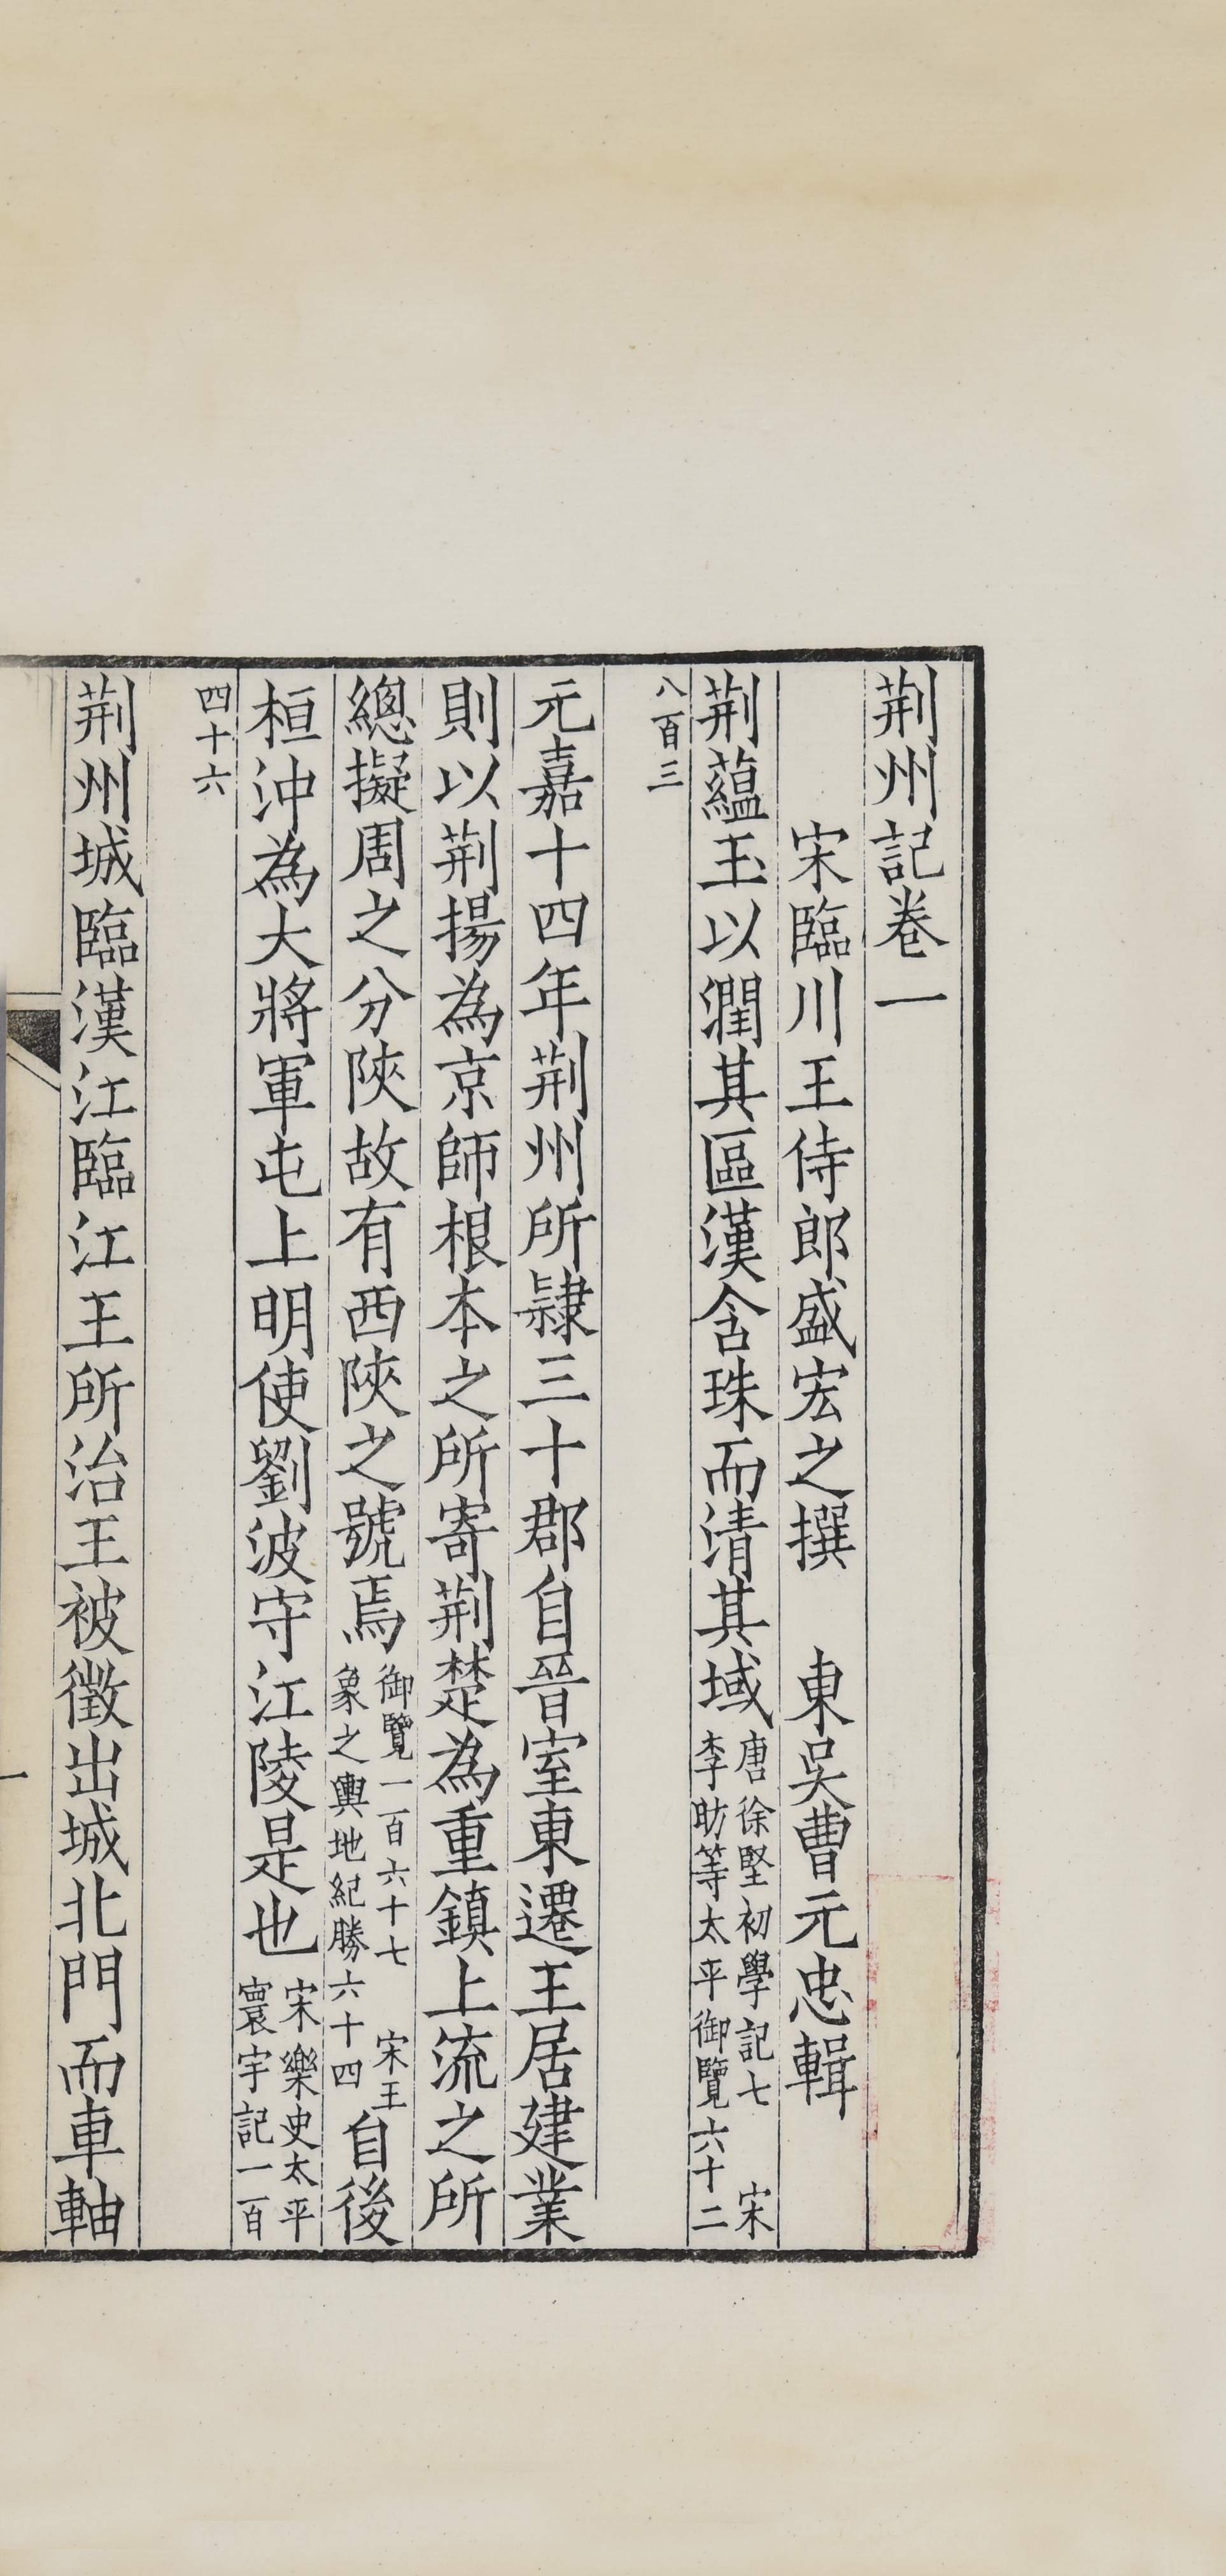 荆州記卷一
宋臨川王侍郎盛宏之撰　東吳曹元忠輯
荆蘊玉以潤其區漢含珠而清其域唐徐堅初學記七　宋李昉等太平御覽六十二
八百三
元嘉十四年荆州所隸三十郡自晉室東遷王居建業
則以荆揚為京師根本之所寄荆楚為重鎮上流之所
總擬周之分陝故有西陝之號焉御覽一百六十七　宋王象之輿地紀勝六十四自後
桓沖為大將軍屯上明使劉波守江陵是也宋樂史太平寰宇記一百
四十六
荆州城臨漢江臨江王所治王被徵出城北門而車軸
一